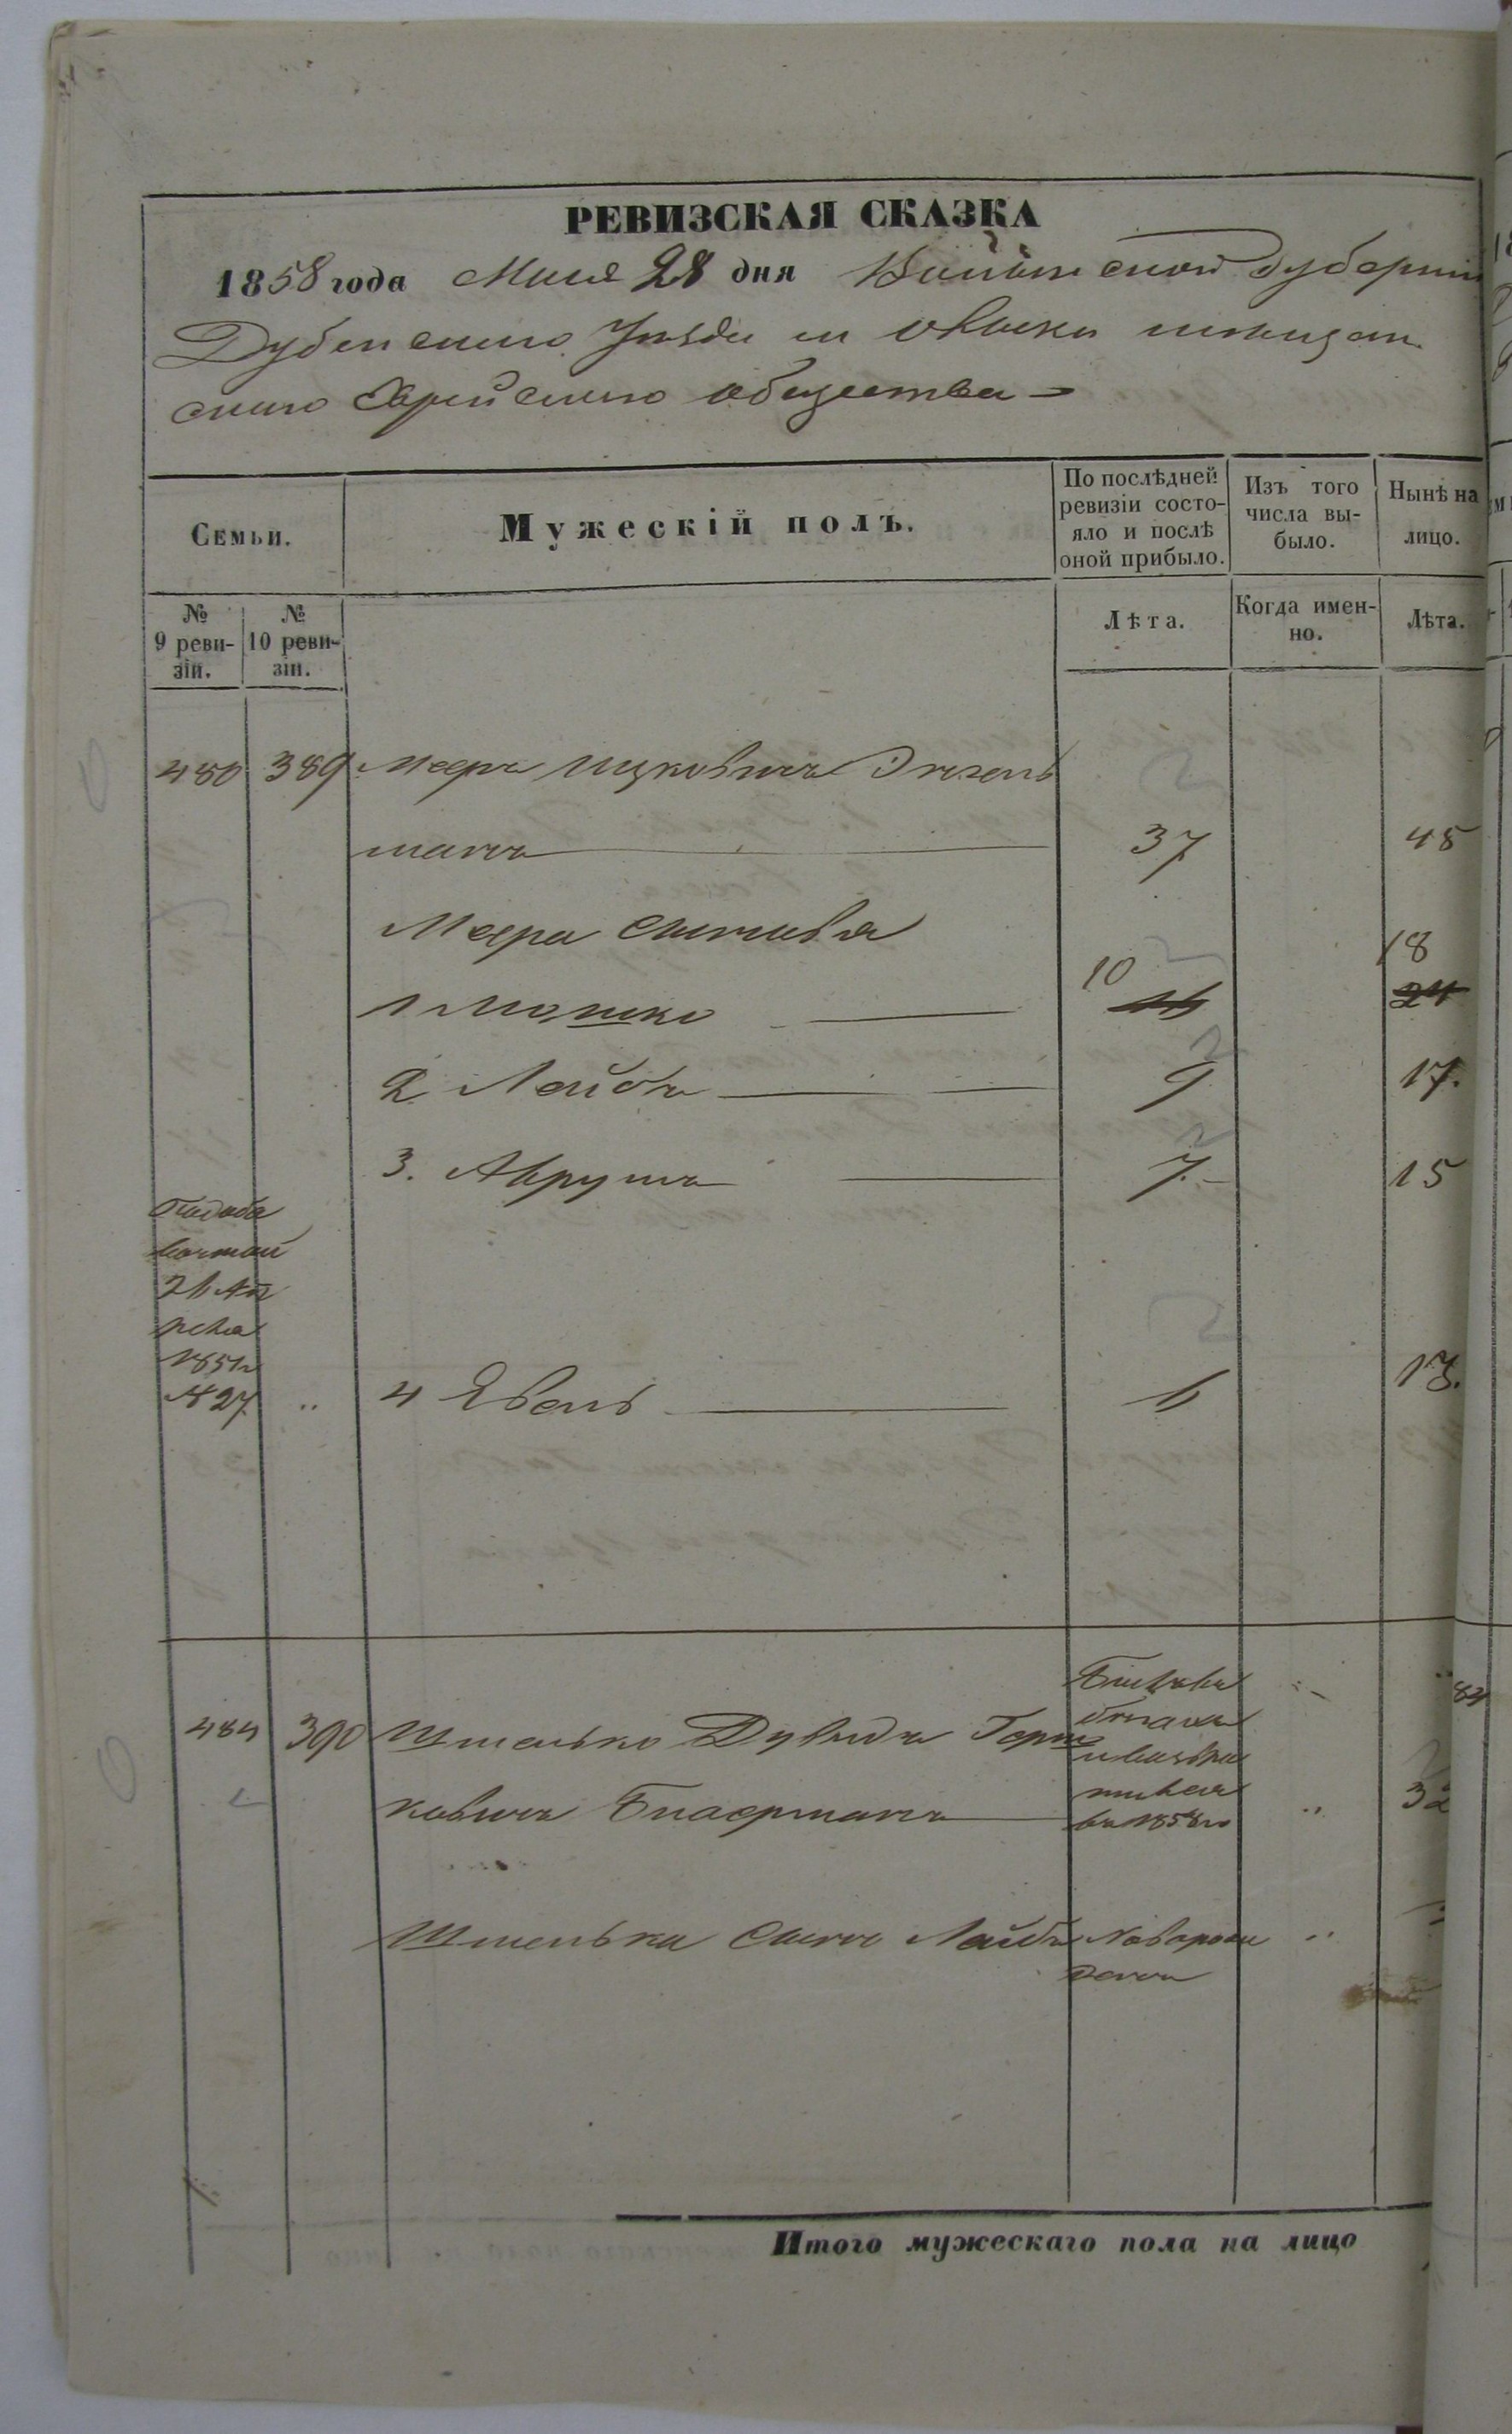 РЕВИЗСКАЯ СКАЗКА
1858 года Мая 28 дня Волынской Губерніи
Дубенскаго Уѣзда м Олыки мѣщан
скаго Еврейскаго общества
Семьи.
Мужескій полъ.
По послѣдней ревизіи состо-
яло и послѣ оной прибыло.
Изъ того числа вы-
было.
Нынѣ на лицо.
№ 9 реви-
зіи.
№ 10 реви-
зіи.
Лѣта.
Когда имен-
но.
Лѣта.
480 389 Мееръ Ицковичъ
манъ 37 45
Меера сыновья
10 18
1 Мошко 16 24
2 Лейба 9 17.
3. Аврумъ 7. 15
21 Ап
реля
1851г
№ 27 4 6 13.
484 390 Шмелько Дувидъ Герш
ковичъ 32
въ 1858г
Шмелька сынъ Лейба Новорож
денъ
Итого мужескаго пола на лицо